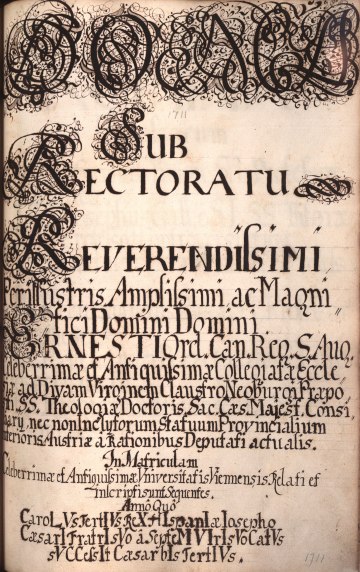 1711
SUB
RECTORATU
REVERENDISSIMI
Perillustris, Amplissimi, ac Magni
fici Domini Domini
ERNESTI Ord. Can. Reg. S. Aug.
Celeberrimæ et Antiquissimæ Collegiatæ Eccle
siæ ad Divam Virginem Claustro Neoburgi Præpo
siti, SS. Theologiæ Doctoris, Sac. Cæs. Majest. Consi
liarÿ, nec non Inclytorum Statuum Provincialium
Inferioris Austriæ à Rationibus Deputati actualis.
In Matriculam
Celeberrimæ et Antiquissimæ Universitatis Viennensis Relati et
inscripti sunt Sequentes.
Anno Quo
CaroLVs TertIVs ReX HIspanIæ Iosepho
CæsarI FratrI sVo à septeMVIrIs VoCatVs
sVCCessIt Cæsar bIs TertIVs.
1711